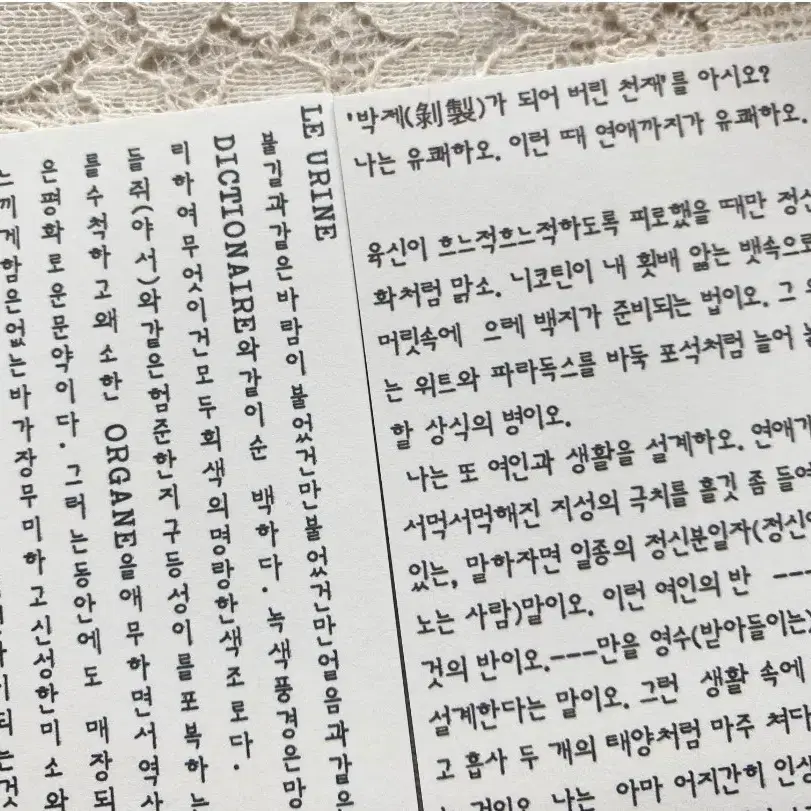 LE URINE
불길과같은바람이 불었건만불었건만얼음과같은
DICTIONAIRE와같이순 백하다. 녹색풍경은망
리하여무엇이건모두회색의명랑한색조로다.
들쥐(야서)와같은험준한지구등성이를포복하는
를수척하고왜소한 ORGANE을애무하면서역사
은평화로운문약이다. 그러는동안에도 매장되
느끼게함은없는바가장무미하고신성한미소와
되는것
'박제(剝製)가 되어 버린 천재'를 아시오?
나는 유쾌하오. 이런 때 연애까지가 유쾌하오.
육신이 흐느적흐느적하도록 피로했을 때만 정신
화처럼 맑소. 니코틴이 내 횟배 앓는 뱃속으로
머릿속에 으레 백지가 준비되는 법이오. 그
는 위트와 파라독스를 바둑 포석처럼 늘어
할 상식의 병이오.
나는 또 여인과 생활을 설계하오. 연애
서먹서먹해진 지성의 극치를 흘깃 좀 들여
있는, 말하자면 일종의 정신분일자(정신
노는 사람)말이오. 이런 여인의 반 ---
것의 반이오.---만을 영수(받아들이는)
설계한다는 말이오. 그런 생활 속에
고 흡사 두 개의 태양처럼 마주 쳐다
것이오. 나는 아마 어지간히 인생